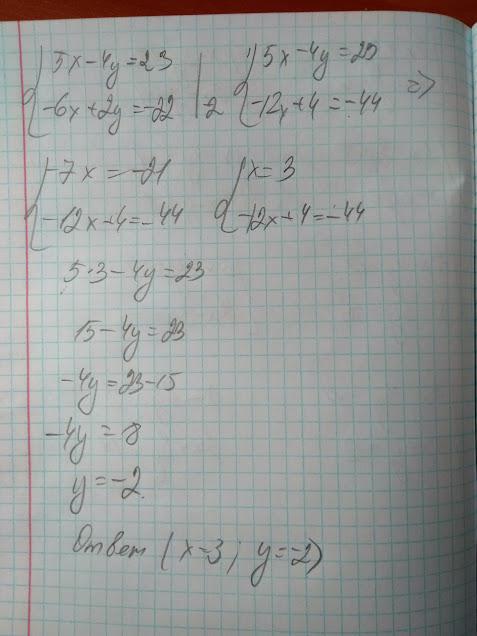 5x-4y=23 5x-4y=23
-6x+2y=-22 |·2 -12x+4=-44 =>
-7x=-21 x=3
-12x+4=-44 -12x+4=-44
5·3-4y=23
15-4y=23
-4y=23-15
-4y=8
y=-2
Ответ (x=3; y=-2)